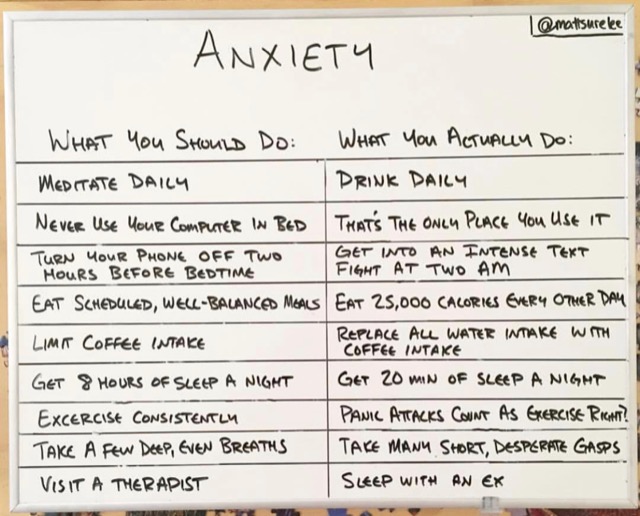 @mattsurelee
ANXIETY
WHAT YOU SHOULD DO: WHAT YOU ACTUALLY DO:
MEDITATE DAILY DRINK DAILY
NEVER USE YOUR COMPUTER IN BED THAT'S THE ONLY PLACE YOU USE IT
TURN YOUR PHONE OFF TWO GET INTO AN INTENSE TEXT
HOURS BEFORE BEDTIME FIGHT AT TWO AM
EAT SCHEDULED, WELL-BALANCED MEALS EAT 25,000 CALORIES EVERY OTHER DAY
LIMIT COFFEE INTAKE REPLACE ALL WATER INTAKE WITH
COFFEE INTAKE
GET 8 HOURS OF SLEEP A NIGHT GET 20 MIN OF SLEEP A NIGHT
EXCERCISE CONSISTENTLY PANIC ATTACKS COUNT AS EXERCISE RIGHT?
TAKE A FEW DEEP, EVEN BREATHS TAKE MANY SHORT, DESPERATE GASPS
VISIT A THERAPIST SLEEP WITH AN EX